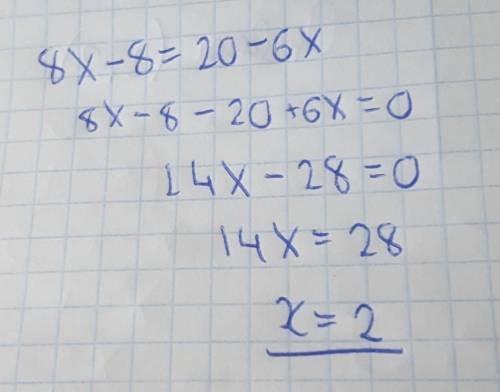 8x-8=20-6x
8x-8-20+6x=0
14x-28=0
14x=28
x=2